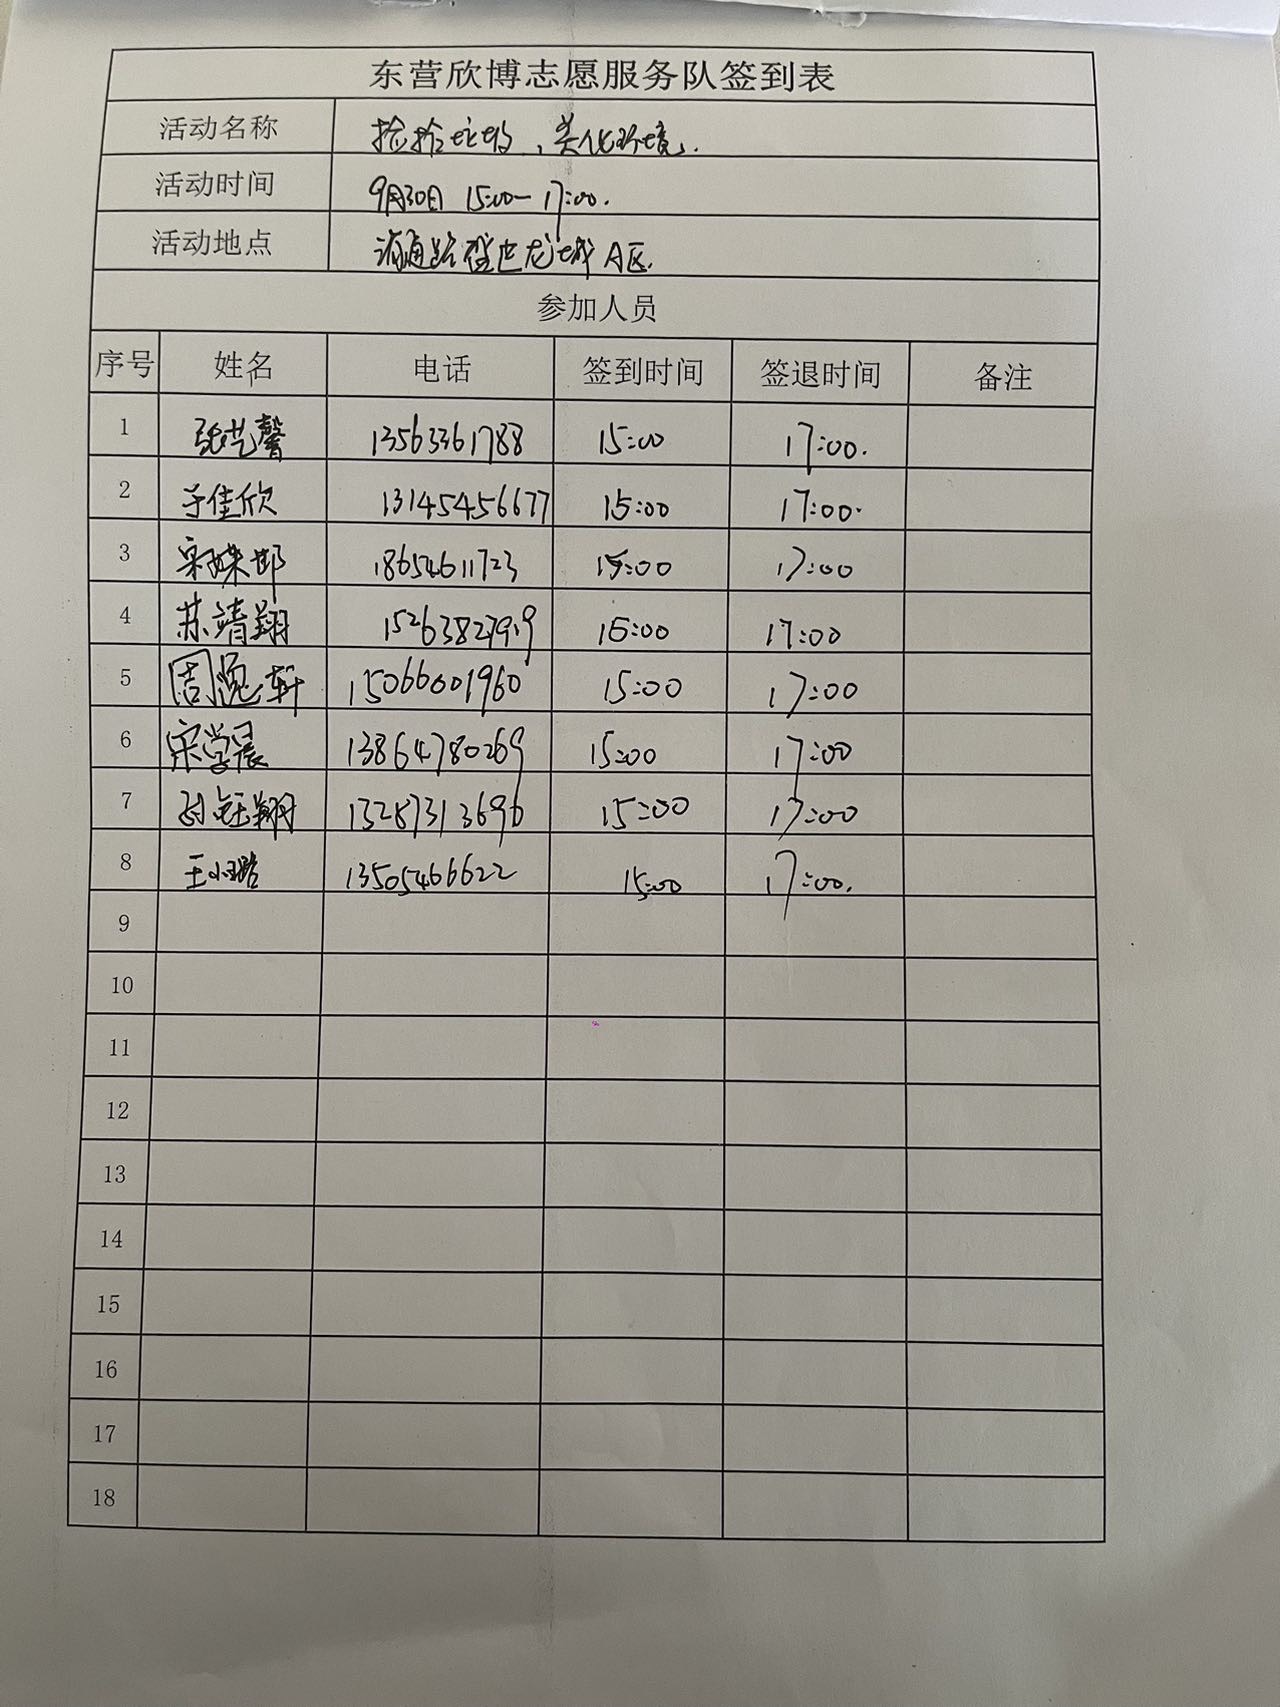 东营欣博志愿服务队签到表
活动名称 捡捡垃圾、美化环境.
活动时间 9月30日 15:00-17:00.
活动地点 龙城A区.
参加人员
序号 姓名 电话 签到时间 签退时间 备注
1 张艺馨 13563361788 15:00 17:00.
2 于佳欣 13145456677 15:00 17:00.
3 18654611723 15:00 17:00
4 苏靖翔 15263827919 15:00 17:00
5 周逸轩 15066001960 15:00 17:00
6 宋学晨 13864780269 15:00 17:00
7 钰翔 13287313696 15:00 17:00
8 王 13505466622 15:00 17:00.
9
10
11
12
13
14
15
16
17
18